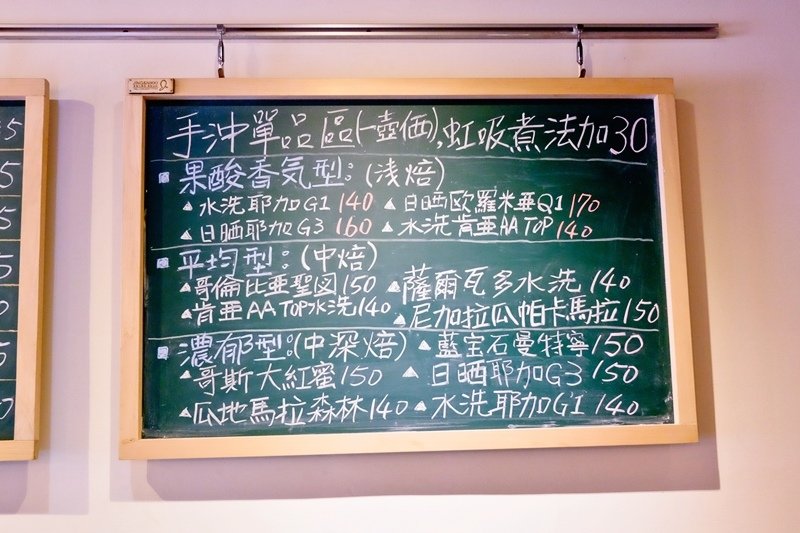 手沖單品區(一壺価),虹吸煮法加30
果酸香気型:(浅焙)
水洗耶加G1 140 日晒欧羅米亜Q1 170
日晒耶加G3 160 水洗肯亜AA TOP 140
平均型:(中焙)
哥倫比亜聖図150 薩爾瓦多水洗 140
肯亜AA TOP水洗140 尼加拉瓜帕卡馬拉150
濃郁型:(中深焙) 藍宝石曼特寧150
哥斯大紅蜜150 日晒耶加G3 150
瓜地馬拉森林140 水洗耶加G1 140